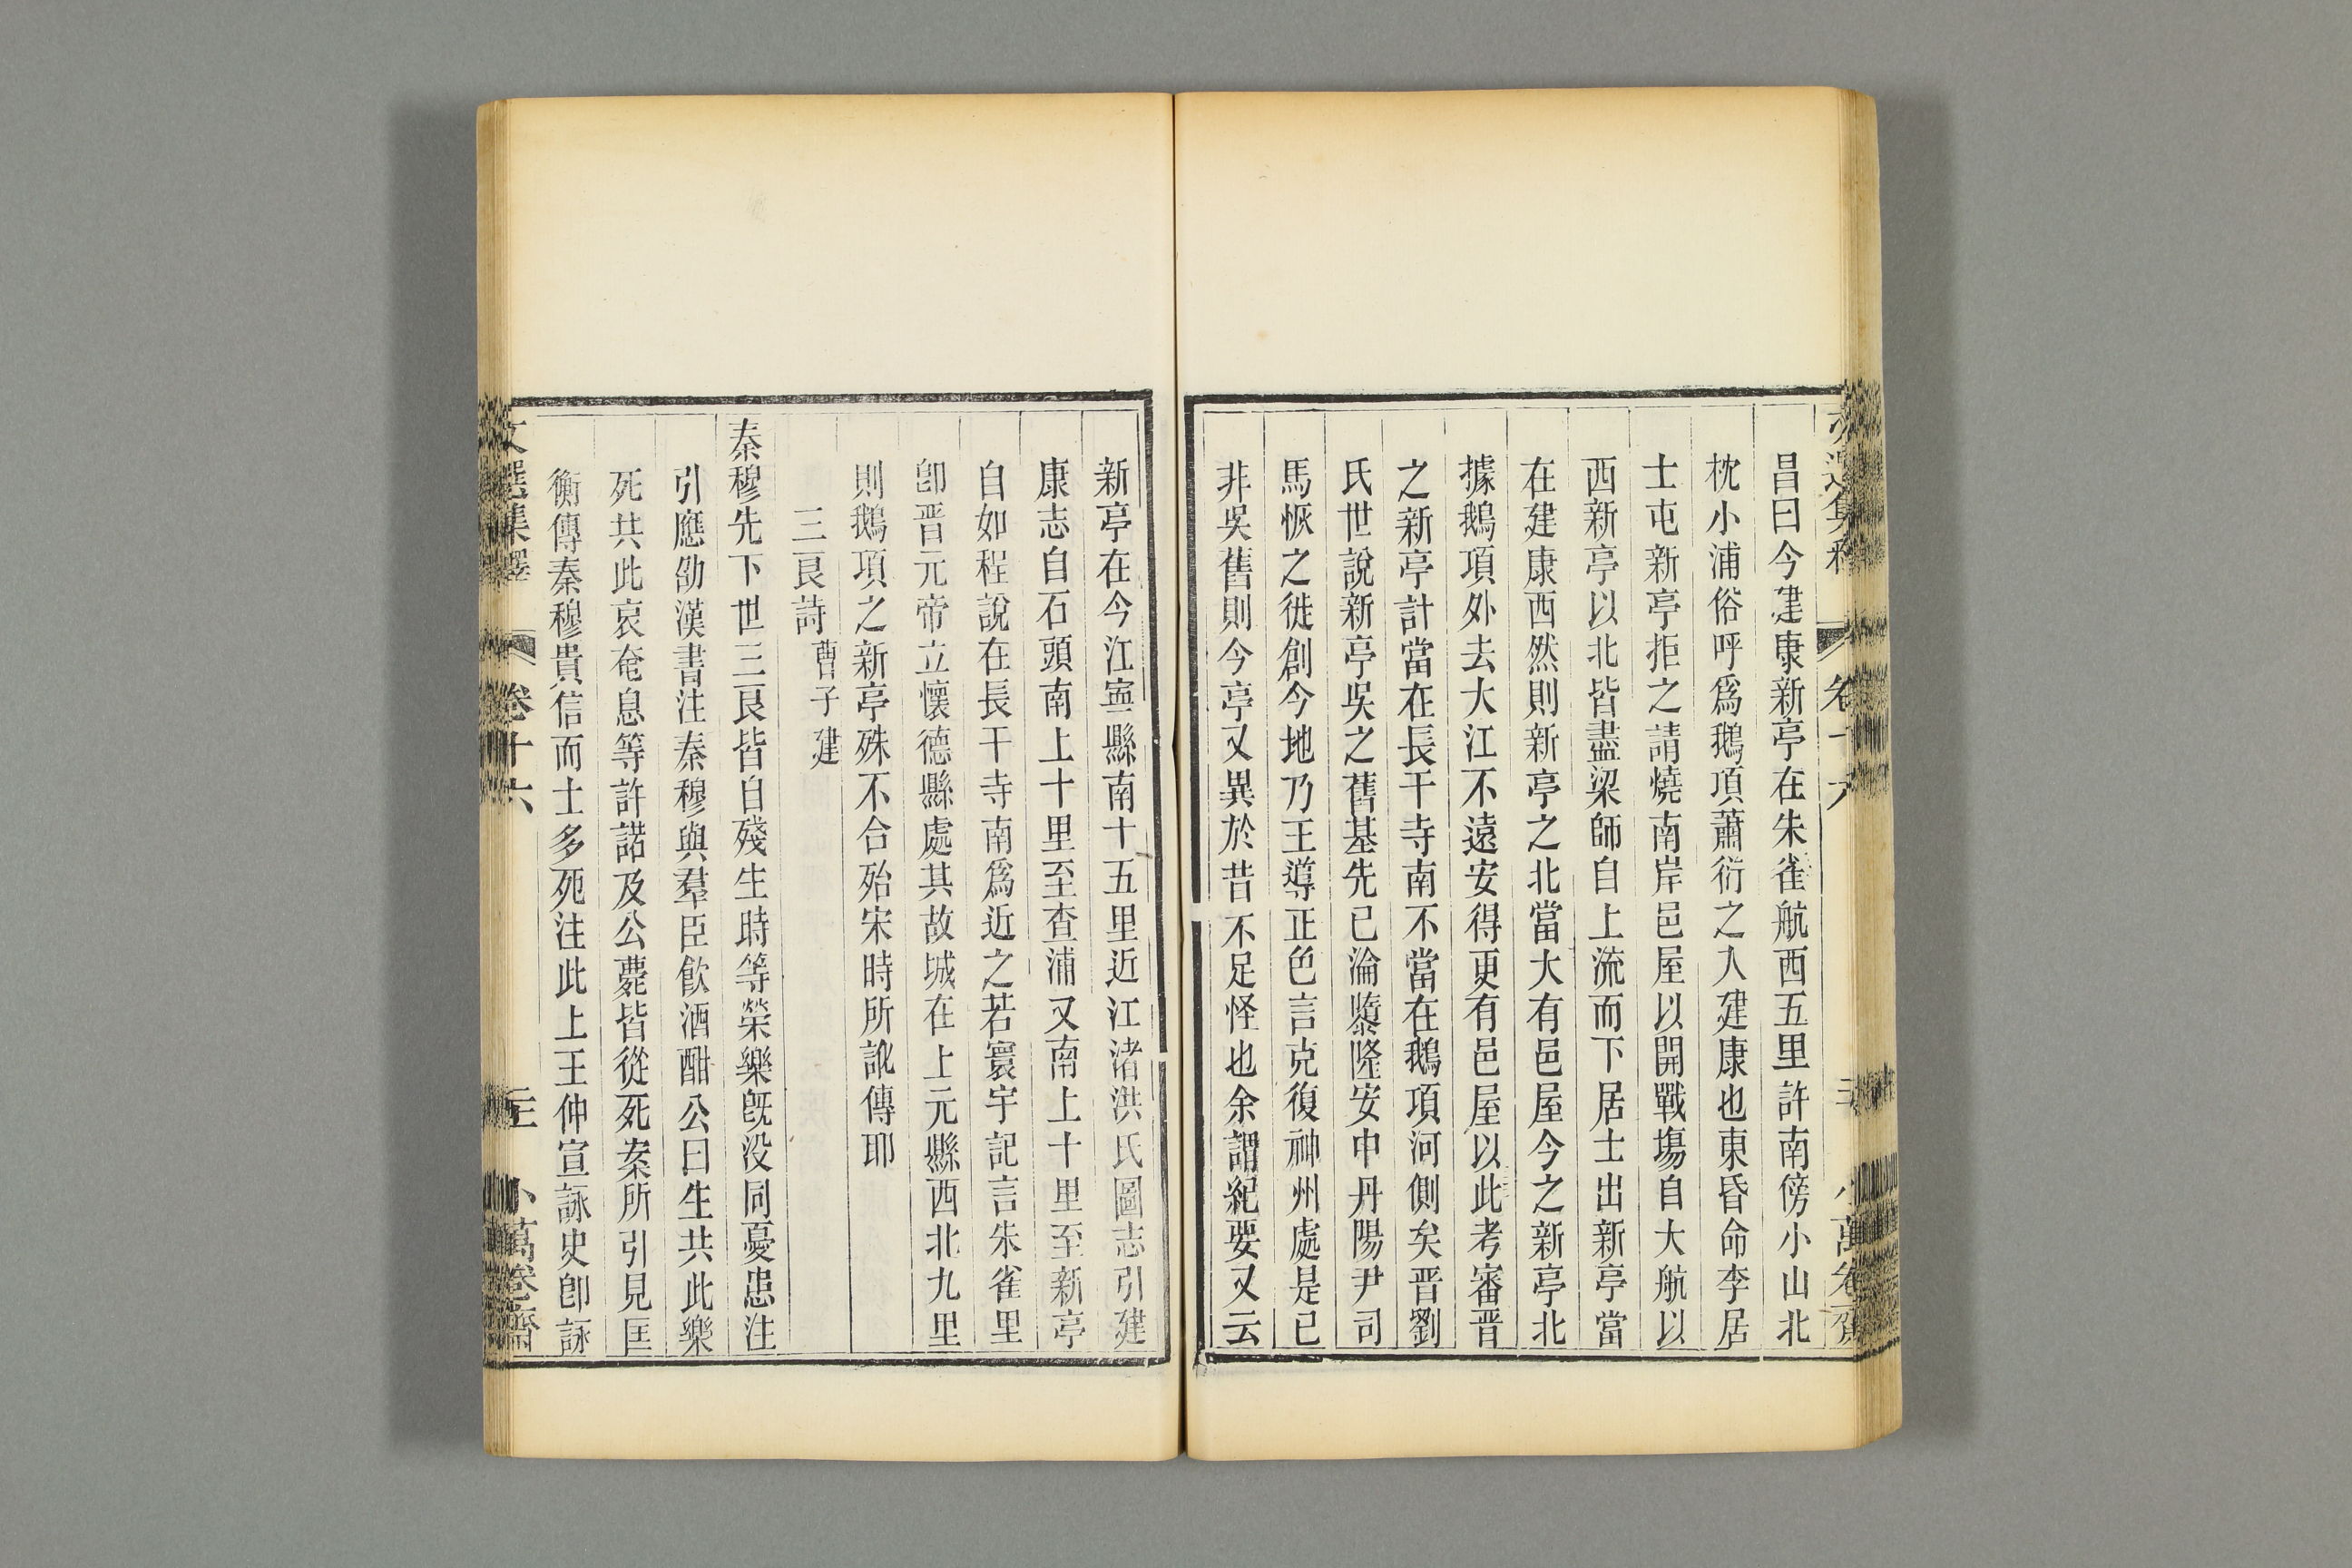 昌曰今建康新亭在朱雀航西五里許南傍小山北
枕小浦俗呼爲鵝項蕭衍之入建康也東昏命李居
士屯新亭拒之請燒南岸邑屋以開戰塲自大航以
西新亭以北皆盡梁師自上流而下居士出新亭當
在建康西然則新亭之北當大有邑屋今之新亭北
據鵝項外去大江不遠安得更有邑屋以此考審晋
之新亭計當在長干寺南不當在鵝項河側矣晋劉
氏世說新亭吳之舊基先已淪隳隆安中丹陽尹司
馬恢之徙創今地乃王導正色言克復神州處是已
非吳舊則今亭又異於昔不足怪也余謂紀要又云
新亭在今江寧縣南十五里近江渚洪氏圖志引建
康志自石頭南上十里至查浦又南上十里至新亭
自如程說在長干寺南爲近之若寰宇記言朱雀里
卽晋元帝立懷德縣處其故城在上元縣西北九里
則鵝項之新亭殊不合殆宋時所訛傳耶
三良詩 曹子建
秦穆先下世三良皆自殘生時等榮樂旣没同憂患注
引應劭漢書注秦穆與羣臣飮酒酣公曰生共此樂
死共此哀奄息等許諾及公薨皆從死案所引見匡
衡傳秦穆貴信而士多死注此上王仲宣詠史卽詠
文選集釋 卷十六 小萬卷齋